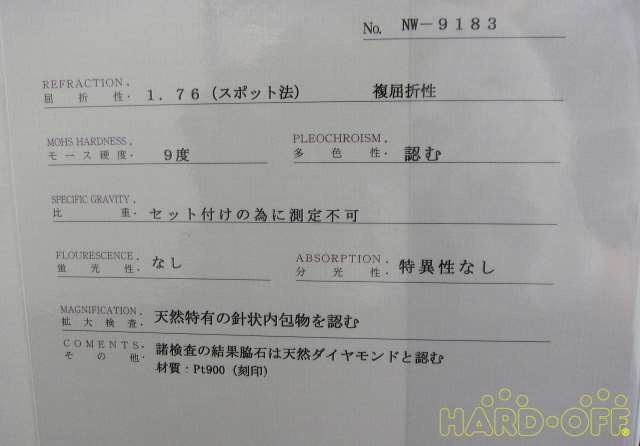 No. NW-9183
REFRACTION.
屈折性. 1.76(スポット法) 複屈折性
MOHS HARDNESS. PLEOCHROISM.
モース硬度. 9度 多色性. 認む
SPECIFIC GRAVITY.
比重. セット付けの為に測定不可
FLOURESCENCE. なし ABSORPTION.
蛍光性. 分光性. 特異性なし
MAGNIFICATION. 天然特有の針状内包物を認む
拡大検査.
COMENTS. 諸検査の結果脇石は天然ダイヤモンドと認む
その他. 材質:Pt900(刻印)
HARD-OFF